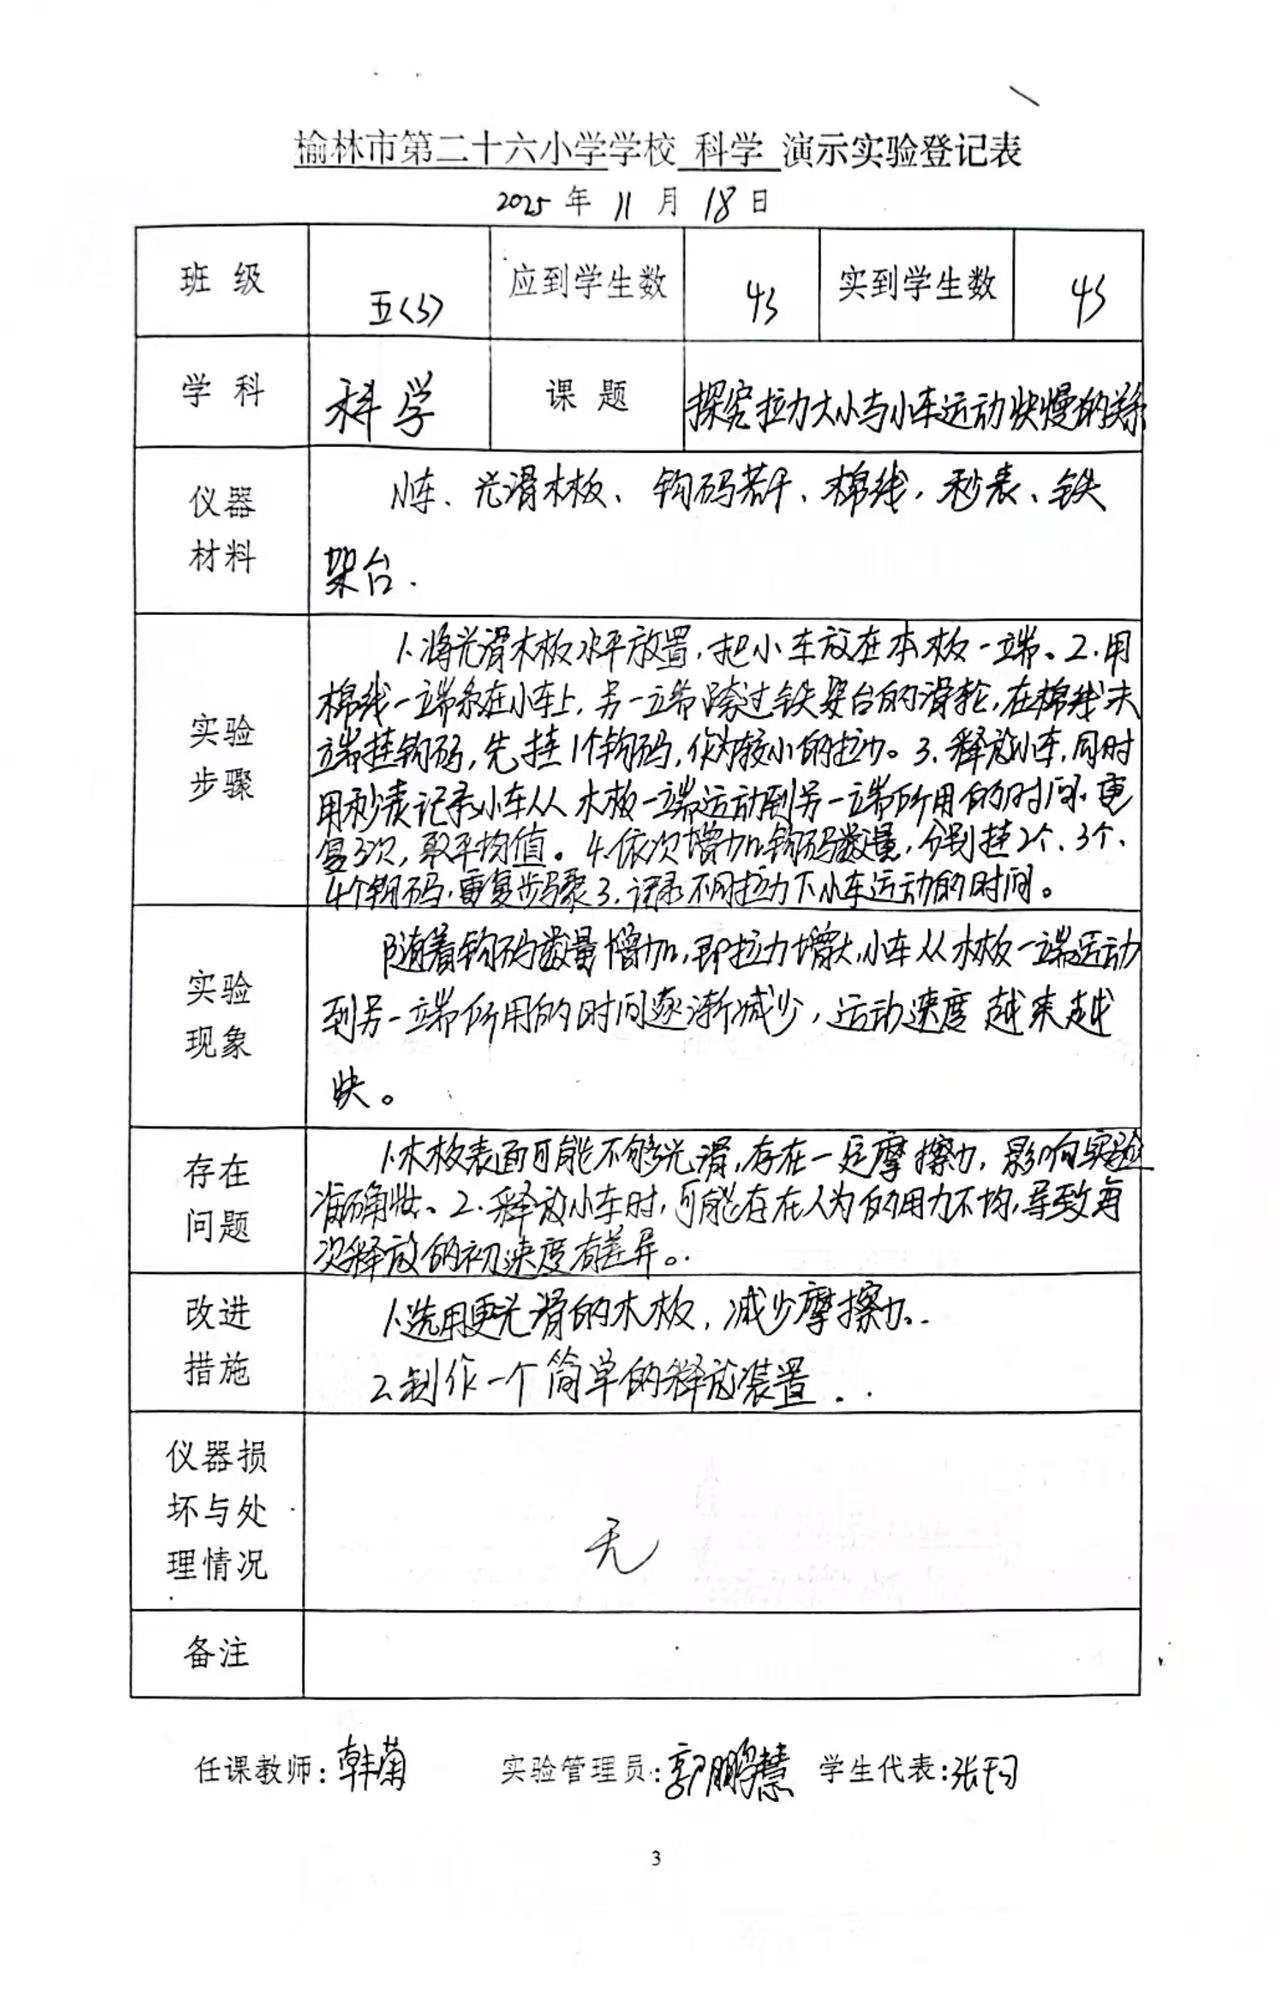 榆林市第二十六小学学校 科学 演示实验登记表
2025 年 11 月 18 日
班级 五(5) 应到学生数 45 实到学生数 45
学科 科学 课题 探究拉力大小与小车运动快慢的关系
仪器材料 小车、光滑木板、钩码若干、棉线,秒表、铁
架台.
实验步骤 1.将光滑木板水平放置,把小车放在木板一端。2.用
棉线一端系在小车上,另一端跨过铁架台的滑轮,在棉线末
端挂钩码,先挂1个钩码,作为较小的拉力。3.释放小车,同时
用秒表记录小车从木板一端运动到另一端所用的时间,重
复3次,取平均值。4.依次增加钩码数量,分别挂2个、3个、
4个钩码,重复步骤3.记录不同拉力下小车运动的时间。
实验现象 随着钩码数量增加,即拉力增大,小车从木板一端运动
到另一端所用的时间逐渐减少,运动速度越来越
快。
存在问题 1.木板表面可能不够光滑,存在一定摩擦力,影响实验
准确性、2.释放小车时,可能存在人为的用力不均,导致每
次释放的初速度有差异。
改进措施 1.选用更光滑的木板,减少摩擦力.
2.制作一个简单的释放装置.
仪器损坏与处理情况 无
备注
任课教师:韩菊 实验管理员:郭鹏慧 学生代表:张
3